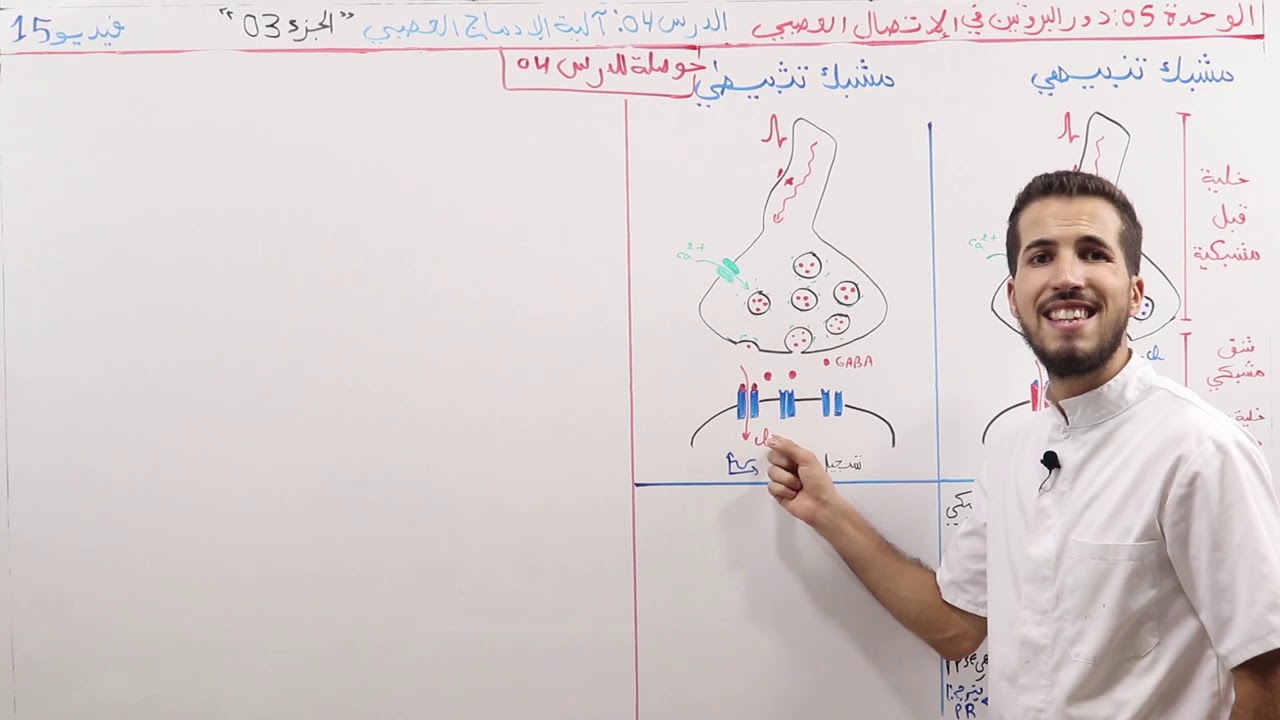 الوحدة 05: دور البروتين في الإتصال العصبي الدرس 04: آلية الإدماج العصبي "الجزء 03" فيديو 15
حوصلة للدرس 04
مشبك تنبيهي
مشبك تثبيطي
خلية
قبل
مشبكية
شق
مشبكي
خلية
Ca²⁺
Ca²⁺
GABA
تسجيل
PPSE
PR